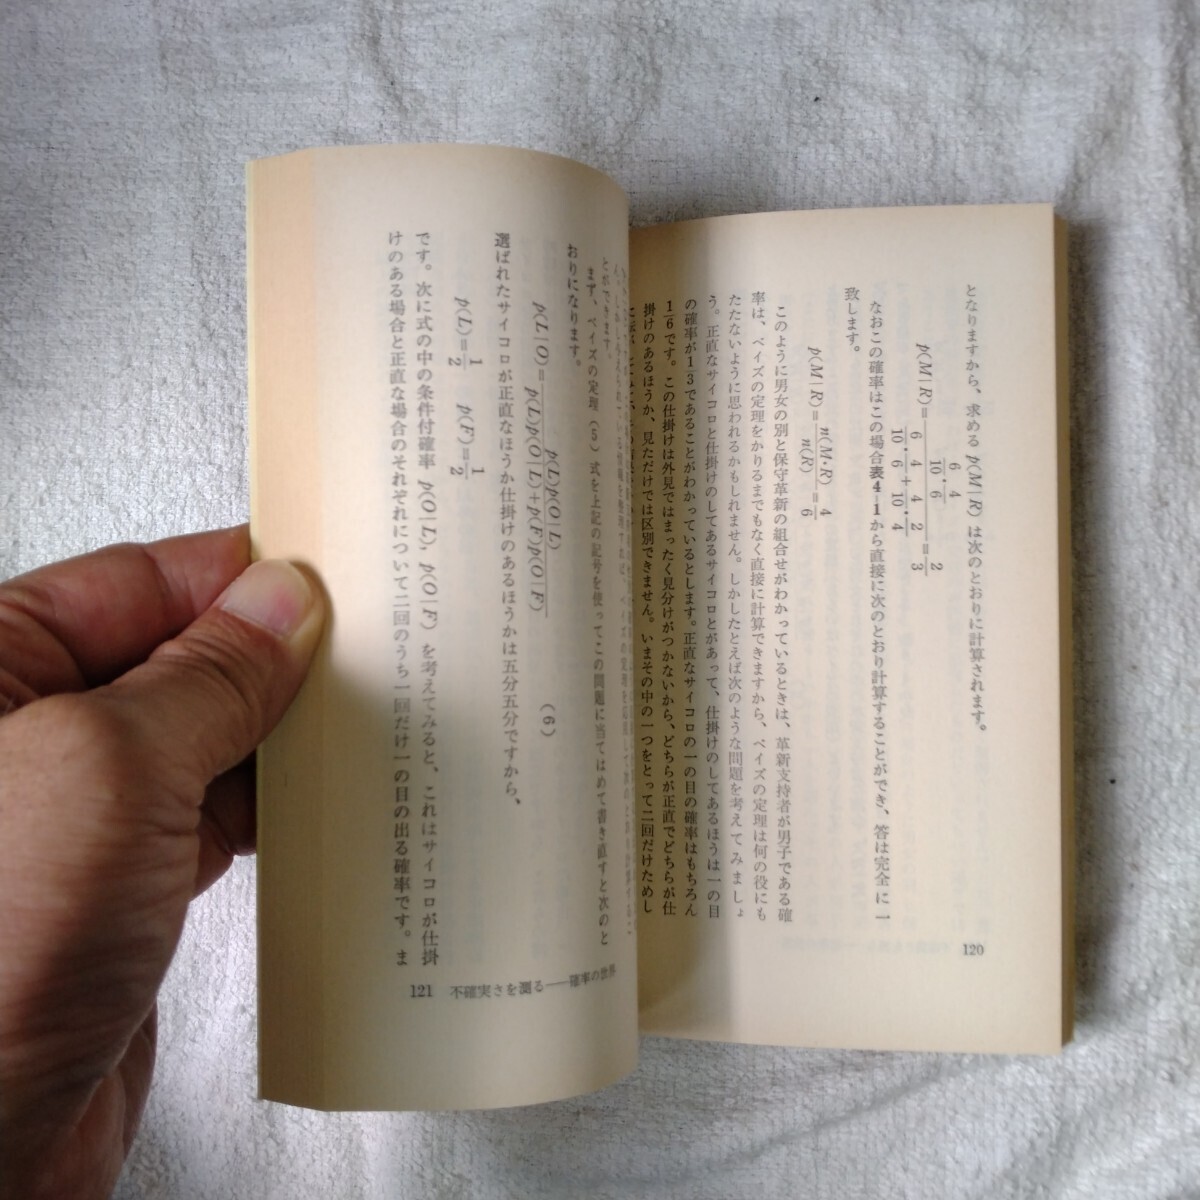 となりますから、求める p(M|R) は次のとおりに計算されます。
p(M|R)=(6/10・4/6)/(6/10・4/6+4/10・2/4)=2/3
なおこの確率はこの場合表4-1から直接に次のとおり計算することができ、答は完全に一
致します。
p(M|R)=n(M・R)/n(R)=4/6
このように男女の別と保守革新の組合せがわかっているときは、革新支持者が男子である確
率は、ベイズの定理をかりるまでもなく直接に計算できますから、ベイズの定理は何の役にも
たたないように思われるかもしれません。しかしたとえば次のような問題を考えてみましょ
う。正直なサイコロと仕掛けのしてあるサイコロとがあって、仕掛けのしてあるほうは一の目
の確率が1/3であることがわかっているとします。正直なサイコロの一の目の確率はもちろん
1/6です。この仕掛けは外見ではまったく見分けがつかないから、どちらが正直でどちらが仕
掛けのあるほうか、見ただけでは区別できません。いまその中の一つをとって二回だけためし
120
とができます。
まず、ベイズの定理(5)式を上記の記号を使ってこの問題に当てはめて書き直すと次のと
おりになります。
p(L|O)=p(L)p(O|L)/(p(L)p(O|L)+p(F)p(O|F)) (6)
選ばれたサイコロが正直なほうか仕掛けのあるほうかは五分五分ですから、
p(L)=1/2 p(F)=1/2
です。次に式の中の条件付確率 p(O|L), p(O|F) を考えてみると、これはサイコロが仕掛
けのある場合と正直な場合のそれぞれについて二回のうち一回だけ一の目の出る確率です。ま
121 不確実さを測る――確率の世界